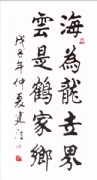 海為龍世界
雲是鶴家鄉
戊子年仲夏建法